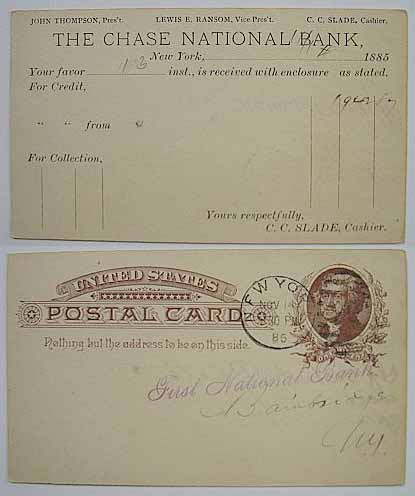 JOHN THOMPSON, Pres't. LEWIS E. RANSOM, Vice Pres't. C. C. SLADE, Cashier.
THE CHASE NATIONAL BANK,
New York, 1885
Your favor 13 inst., is received with enclosure as stated.
For Credit,
" " from
For Collection,
Yours respectfully,
C. C. SLADE, Cashier.
UNITED STATES
POSTAL CARD
Nothing but the address to be on this side.
NEW YORK
NOV 14
30 PM
85
First National Bank
Bainbridge
N.Y.